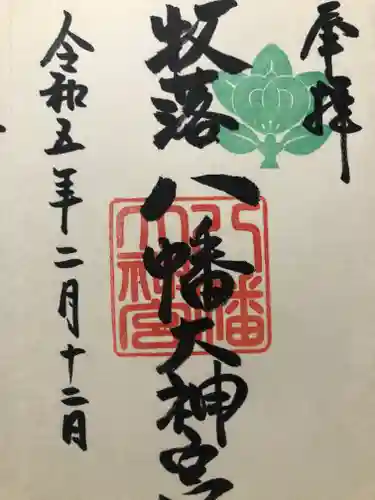 奉拝
牧落
八幡大神宮
八幡
大神宮
令和五年二月十二日